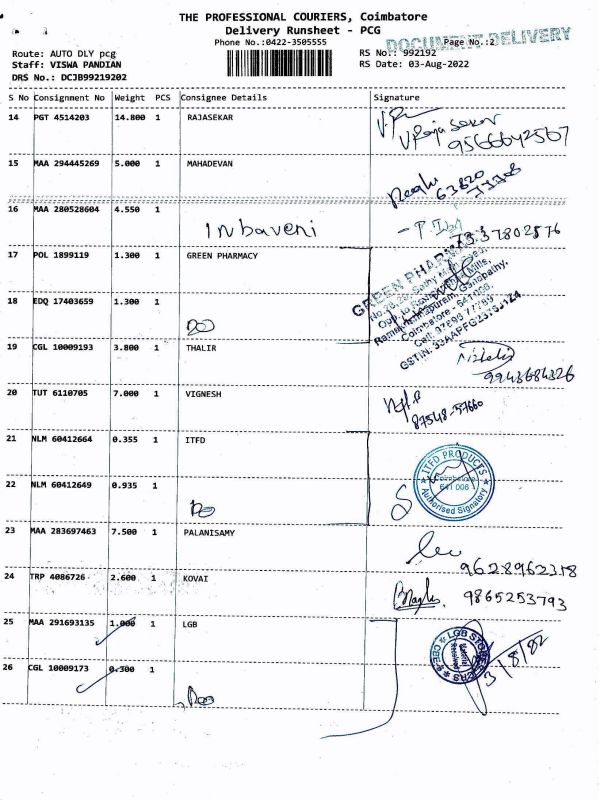 THE PROFESSIONAL COURIERS, Coimbatore
Delivery Runsheet - PCG
Phone No.:0422-3505555
DOCUMENT DELIVERY
Page No.:2
Route: AUTO DLY pcg
RS No.: 992192
Staff: VISWA PANDIAN
RS Date: 03-Aug-2022
DRS No.: DCJB99219202
S No Consignment No Weight PCS Consignee Details Signature
14 PGT 4514203 14.800 1 RAJASEKAR
V Raja Sekar
9566642567
15 MAA 294445269 5.000 1 MAHADEVAN
63820
16 MAA 280528604 4.550 1
Inbaveni
17 POL 1899119 1.300 1 GREEN PHARMACY
GREEN PHARMACY
Coimbatore
18 EDQ 17403659 1.300 1
Do
19 CGL 10009193 3.800 1 THALIR
9943684326
20 TUT 6110705 7.000 1 VIGNESH
87548-57660
21 NLM 60412664 0.355 1 ITFD
ITFD PRODUCTS
Coimbatore
641 006
Authorised Signatory
22 NLM 60412649 0.935 1
Do
23 MAA 283697463 7.500 1 PALANISAMY
9628962318
24 TRP 4086726 2.600 1 KOVAI
9865253793
25 MAA 291693135 1.000 1 LGB
LGB
Material
Received
CBE
3/8/22
26 CGL 10009173 0.300 1
Do